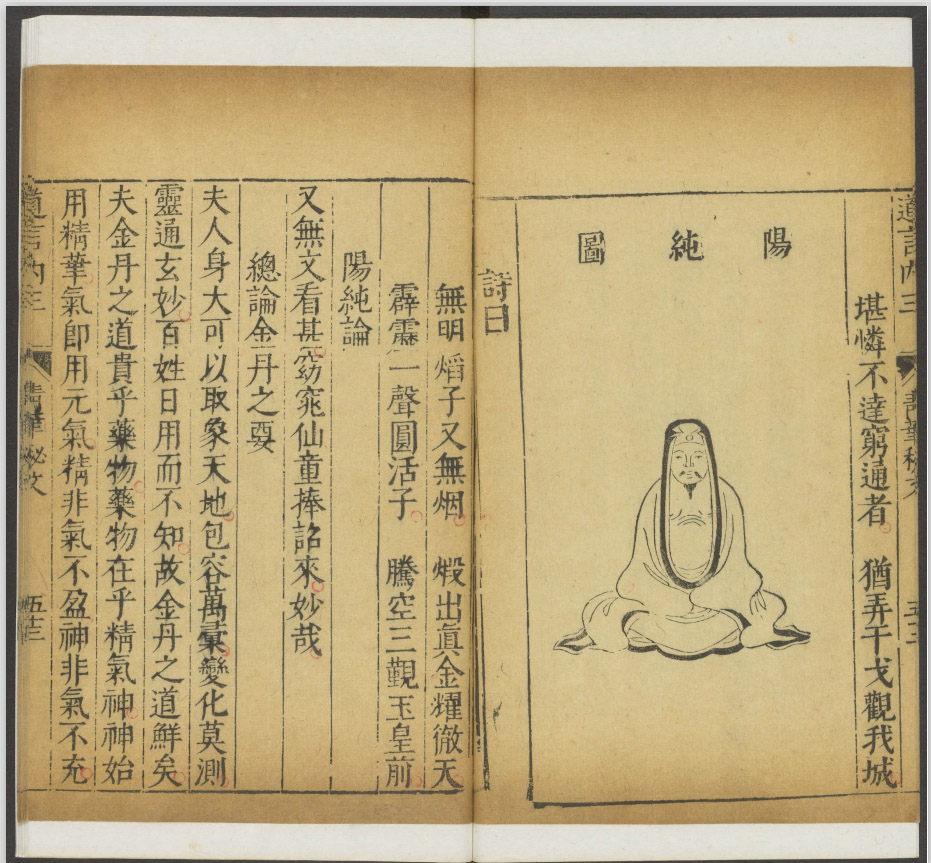 道言內三
堪憐不達窮通者 猶弄干戈觀我城
陽純圖
詩曰
無明熖子又無烟 煅出眞金耀徹天
霹靂一聲圓活子 騰空三觀玉皇前
陽純論
又無文看甚窈窕仙童捧詔來妙哉
總論金丹之要
夫人身大可以取象天地包容萬彙變化莫測
靈通玄妙百姓日用而不知故金丹之道鮮矣
夫金丹之道貴乎藥物藥物在乎精氣神神始
用精華氣卽用元氣精非氣不盈神非氣不充
道言內三